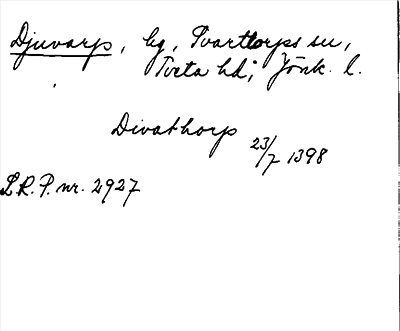 Djuvarp, by, Svarttorps sn,
Tveta hd; Jönk. l.
Divathorp 23/7 1398
S.R.P. nr. 2927